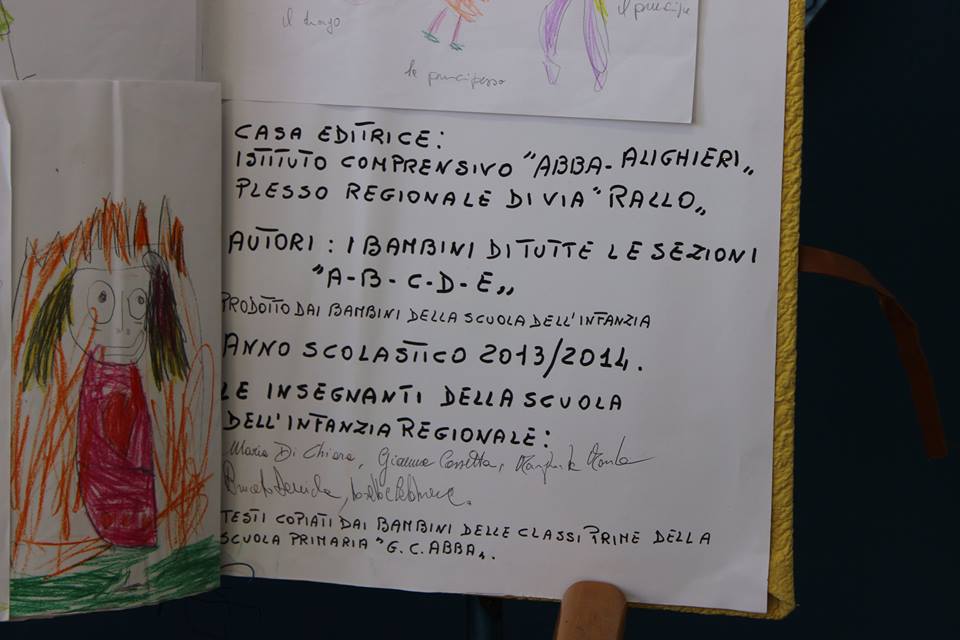 il drago
il principe
la principessa
CASA EDITRICE:
ISTITUTO COMPRENSIVO "ABBA-ALIGHIERI„
PLESSO REGIONALE DI VIA "RALLO„
AUTORI: I BAMBINI DI TUTTE LE SEZIONI
"A-B-C-D-E„
PRODOTTO DAI BAMBINI DELLA SCUOLA DELL'INFANZIA
ANNO SCOLASTICO 2013/2014.
LE INSEGNANTI DELLA SCUOLA
DELL'INFANZIA REGIONALE:
Maria Di Chiara, Gianna Cassetta,
TESTI COPIATI DAI BAMBINI DELLE CLASSI PRIME DELLA
SCUOLA PRIMARIA "G.C. ABBA„.